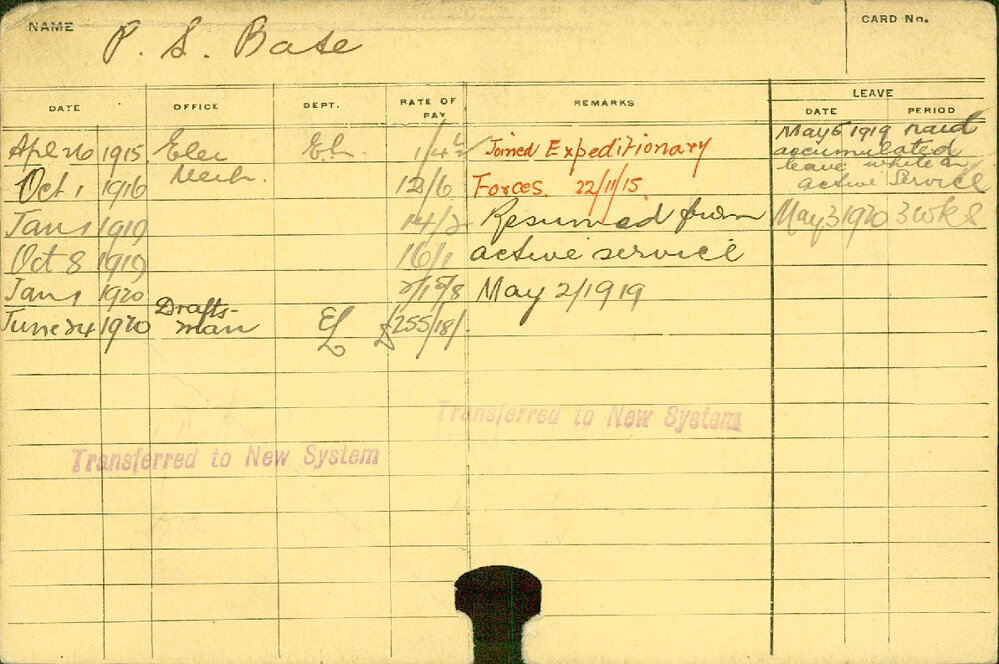 NAME P. S. Bate CARD No.
LEAVE
DATE OFFICE DEPT. RATE OF PAY REMARKS DATE PERIOD
Apl 26 1915 Elec El. 1/4½ Joined Expeditionary May 5 1919 paid
accumulated
Oct 1 1916 Mech. 12/6 Forces. 22/11/15. leave while on
active Service
Jan 1 1919 14/2 Resumed from May 3 1920 3 wks
Oct 8 1919 16/1 active service
Jan 1 1920 May 2/1919
Drafts-
June 24 1920 man El £255/18/.
Transferred to New System
Transferred to New System